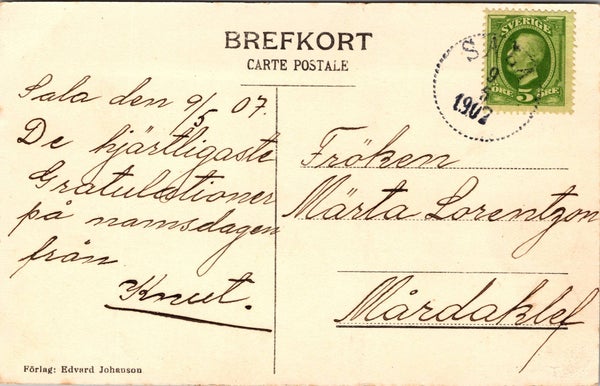 BREFKORT
CARTE POSTALE
SVERIGE
ÖRE 5 ÖRE
SALA
9
5
1907
Sala den 9/5 07.
De hjärtligaste
Gratulationer
på namsdagen
från
Knut.
Fröken
Märta Lorentzon
Mårdaklef
Förlag: Edvard Johanson